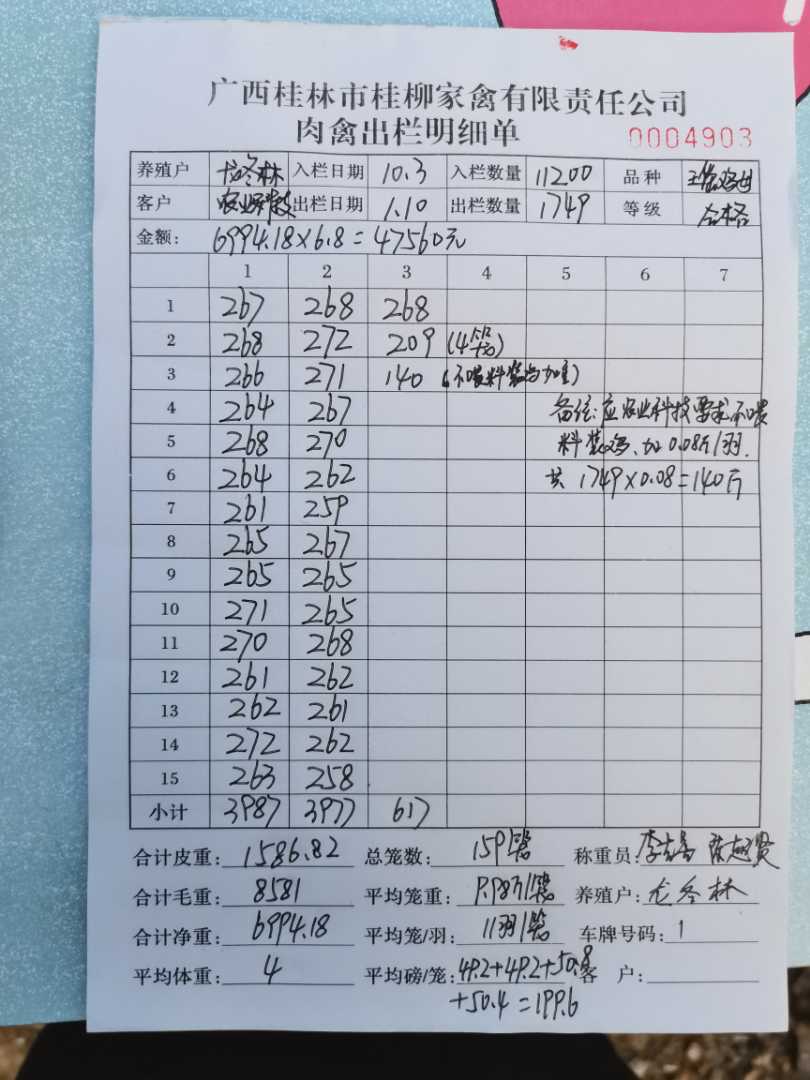 广西桂林市桂柳家禽有限责任公司
肉禽出栏明细单 0004903
养殖户 龙冬林 入栏日期 10.3 入栏数量 11200 品种
客户 农业科技 出栏日期 1.10 出栏数量 1749 等级 合格
金额: 6994.18×6.8=47560元
1 2 3 4 5 6 7
1 267 268 268
2 268 272 209 (4笼)
3 266 271 140 (不喂料装鸡加重)
4 264 267 备注:应农业科技要求不喂
5 268 270 料装鸡、加0.08斤/羽.
6 264 262 共1749×0.08=140斤
7 261 259
8 265 267
9 265 265
10 271 265
11 270 268
12 261 262
13 262 261
14 272 262
15 263 258
小计 3987 3977 617
合计皮重: 1586.82 总笼数: 159笼 称重员:
合计毛重: 8581 平均笼重: 9.98斤/笼 养殖户: 龙冬林
合计净重: 6994.18 平均笼/羽: 11羽/笼 车牌号码: 1
平均体重: 4 平均磅/笼: 49.2+49.2+50.8 客 户:
+50.4=199.6